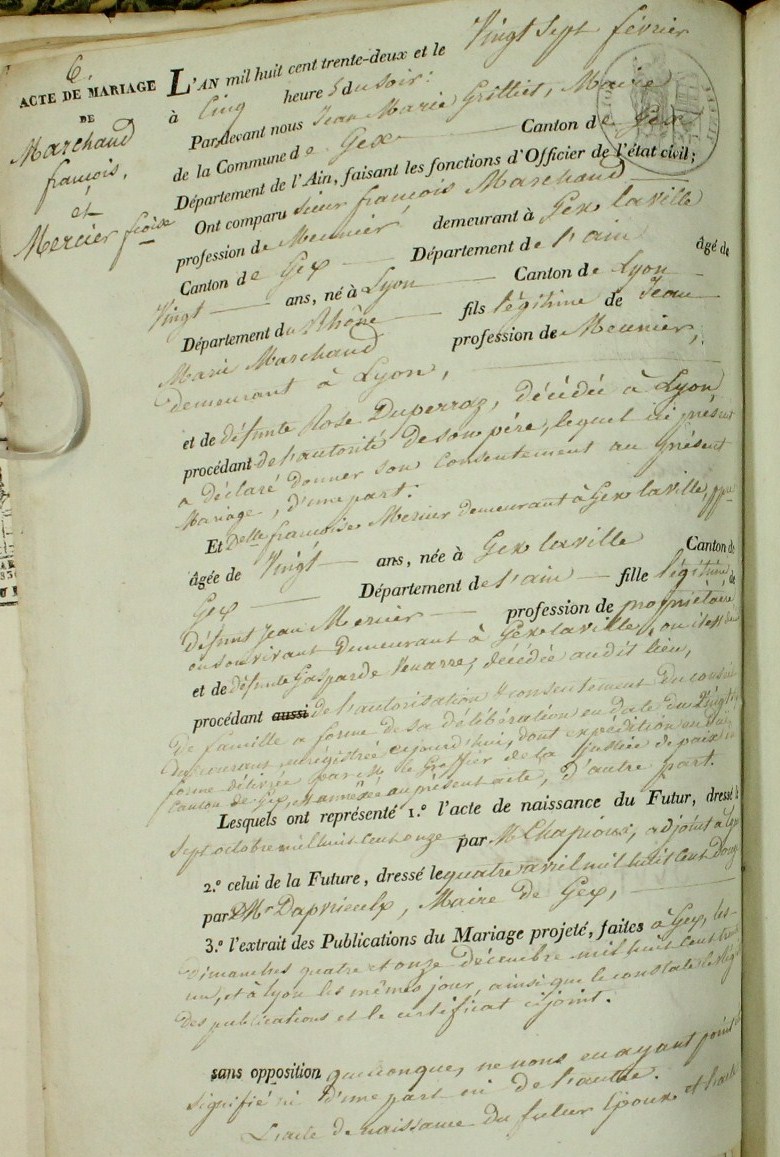 6.
ACTE DE MARIAGE
DE
Marchand
françois,
et
Mercier fçoise
L'AN mil huit cent trente-deux et le Vingt sept février
à Cinq heures du soir:
Pardevant nous Jean Marie Grilliet, Maire
de la Commune de Gex Canton de Gex
Département de l'Ain, faisant les fonctions d'Officier de l'état civil;
Ont comparu Sieur françois Marchand
profession de Meunier, demeurant à Gex la ville
Canton de Gex Département de l'ain âgé de
Vingt ans, né à Lyon Canton de Lyon
Département du Rhône fils légitime de Jean
Marie Marchand profession de Meunier,
demeurant à Lyon,
et de défunte Rose Duperraz, décédée à Lyon
procédant de l'autorité de son père, lequel ici présent
a déclaré donner son consentement au présent
Mariage, d'une part.
Et Delle françoise Mercier demeurant à Gex la ville,
âgée de Vingt ans, née à Gex la ville Canton de
Gex Département de l'ain fille légitime de
défunt Jean Mercier profession de propriétaire
en son vivant demeurant à Gex la ville, où il est
et de défunte Gasparde décédée audit lieu,
procédant aussi de l'autorisation & consentement du conseil
De famille a forme de sa délibération en date du Vingt
du courant, enrégistrée aujourd'hui, dont expédition en
forme délivrée par Mr le Greffier de la Justice de paix du
Canton de Gex, est annexée au présent acte, d'autre part.
Lesquels ont représenté 1.º l'acte de naissance du Futur, dressé le
Sept octobre mil huit cent onze par Mr Chapioux, adjoint à Lyon
2.º celui de la Future, dressé le quatre avril mil huit cent douze
par Mr Maire de Gex,
3.º l'extrait des Publications du Mariage projeté, faites à Gex, les
Dimanches quatre et onze Décembre mil huit cent trente
un, et à Lyon les mêmes jour, ainsi que le constate le
Des publications et le certificat cijoint.
sans opposition quelconque, ne nous en ayant point été
signifié ni d'une part ni de l'autre.
L'acte de naissance du futur Epoux et